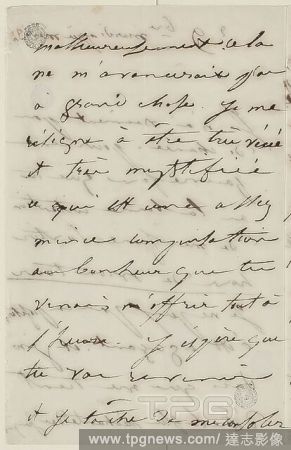 malheureusement cela
ne m'avancerait pas
à grand chose. Je me
résigne à être très vexé
et très mystifiée
ce qui est une assez
mince compensation
au bonheur que tu
venais m'offrir tout à
l'heure. J'espère que
tu vas revenir
et je tâche de me consoler
TPG
www.tpgnews.com/ 達志影像